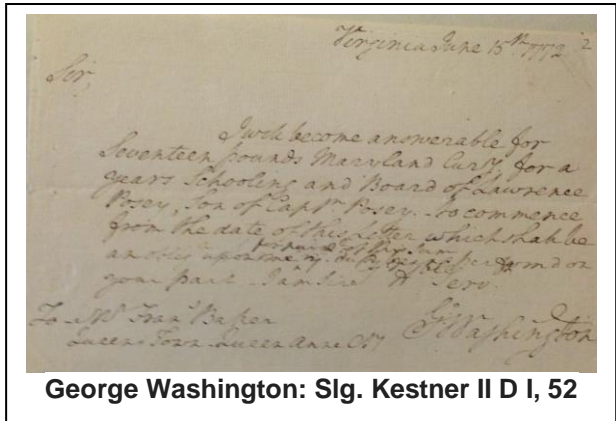 Virginia June 15th 1772
2
Sir,
I will become answerable for
Seventeen pounds Maryland Curry, for a
years Schooling and Board of Lawrence
Posey, Son of Captn Posey. to commence
from the date of this Letter which shall be
on your part I am Sir Hble Serv
To Mr Frans Baker
Queens Town Queen Anne Cty
Go Washington
George Washington: Slg. Kestner II D I, 52